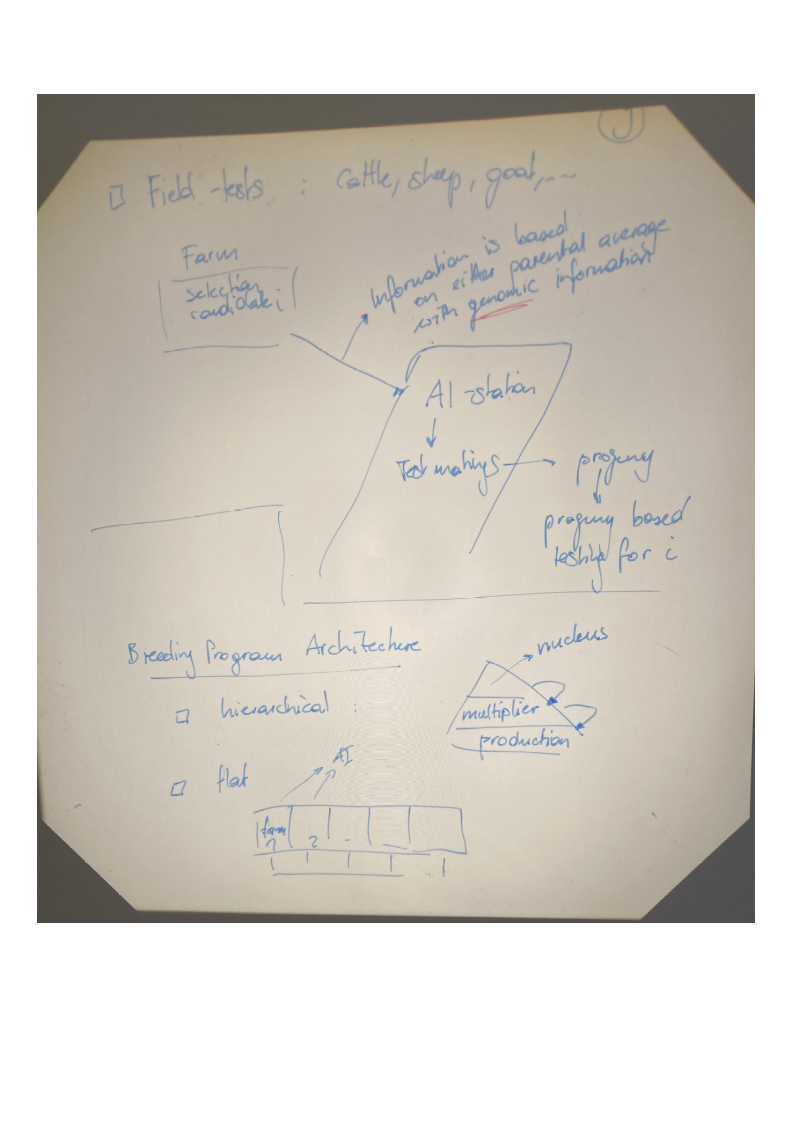 3
Field-tests : Cattle, sheep, goat, ...
Farm
selection
candidate i
Information is based
on either parental average
with genomic information
AI-station
Test matings
progeny
progeny based
testing for i
Breeding Program Architecture
nucleus
hierarchical :
multiplier
production
AI
flat
farm
1 2